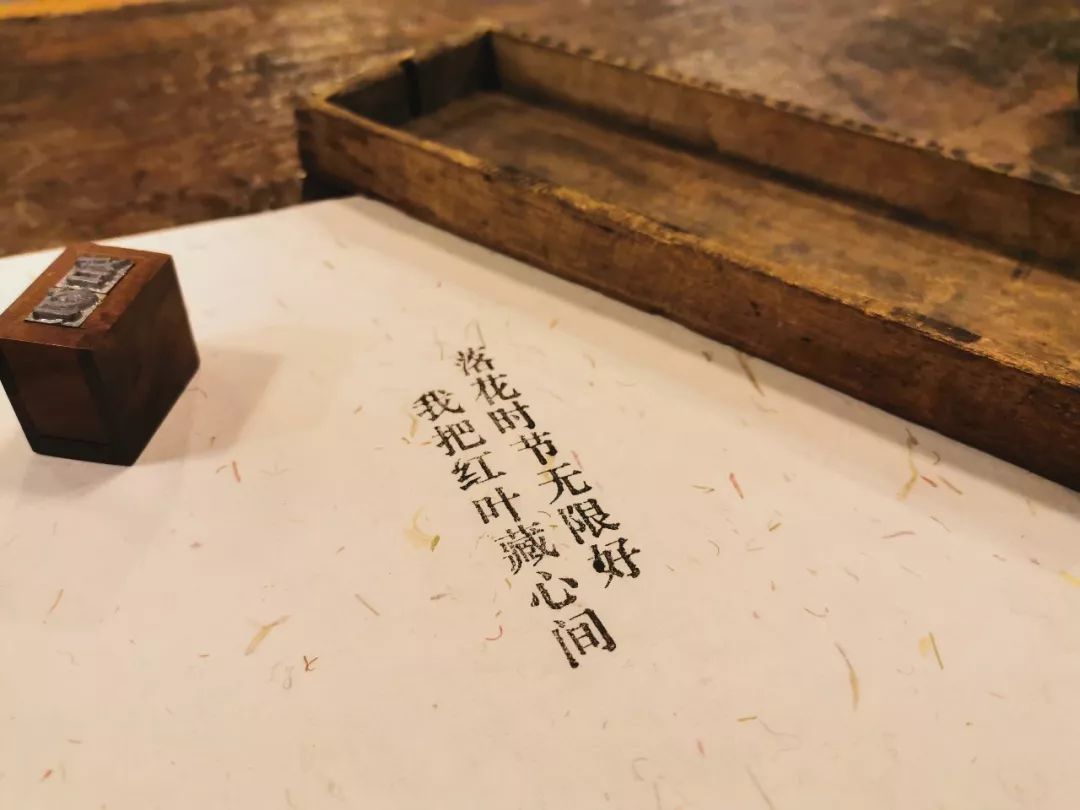 落花时节无限好
我把红叶藏心间